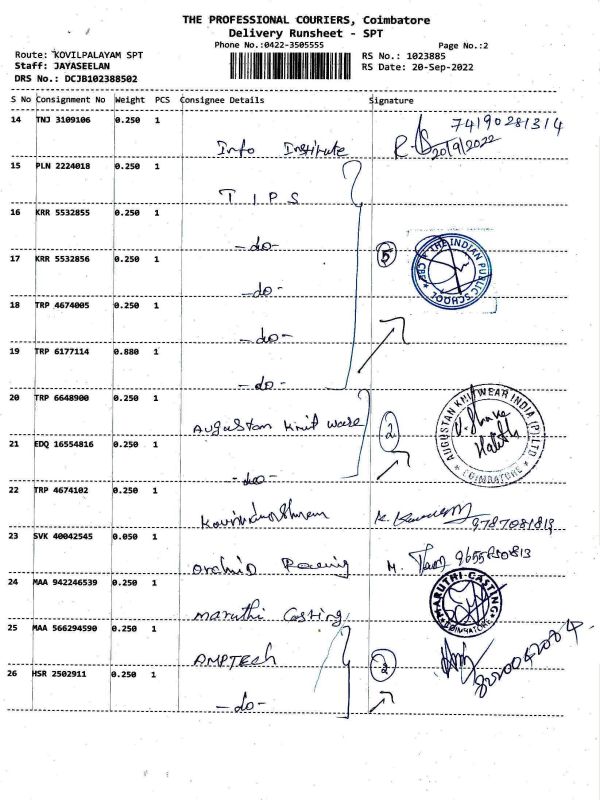 THE PROFESSIONAL COURIERS, Coimbatore
Delivery Runsheet - SPT
Phone No.:0422-3505555
Page No.:2
Route: KOVILPALAYAM SPT
RS No.: 1023885
Staff: JAYASEELAN
RS Date: 20-Sep-2022
DRS No.: DCJB102388502
S No Consignment No Weight PCS Consignee Details Signature
14 TNJ 3109106 0.250 1
74190281314
Info Institute
20/9/2022
15 PLN 2224018 0.250 1
T I P S
16 KRR 5532855 0.250 1
-do-
5
THE INDIAN PUBLIC SCHOOL
CBE
17 KRR 5532856 0.250 1
-do-
18 TRP 4674005 0.250 1
-do-
19 TRP 6177114 0.880 1
-do-
20 TRP 6648900 0.250 1
Augustan Knit Ware
2
AUGUSTAN KNITWEAR INDIA (P) LTD
COIMBATORE
21 EDQ 16554816 0.250 1
-do-
22 TRP 4674102 0.250 1
9787081819
23 SVK 40042545 0.050 1
24 MAA 942246539 0.250 1
Maruthi Casting
MARUTHI CASTING
COIMBATORE
25 MAA 566294590 0.250 1
AMPTECH
2
26 HSR 2502911 0.250 1
-do-